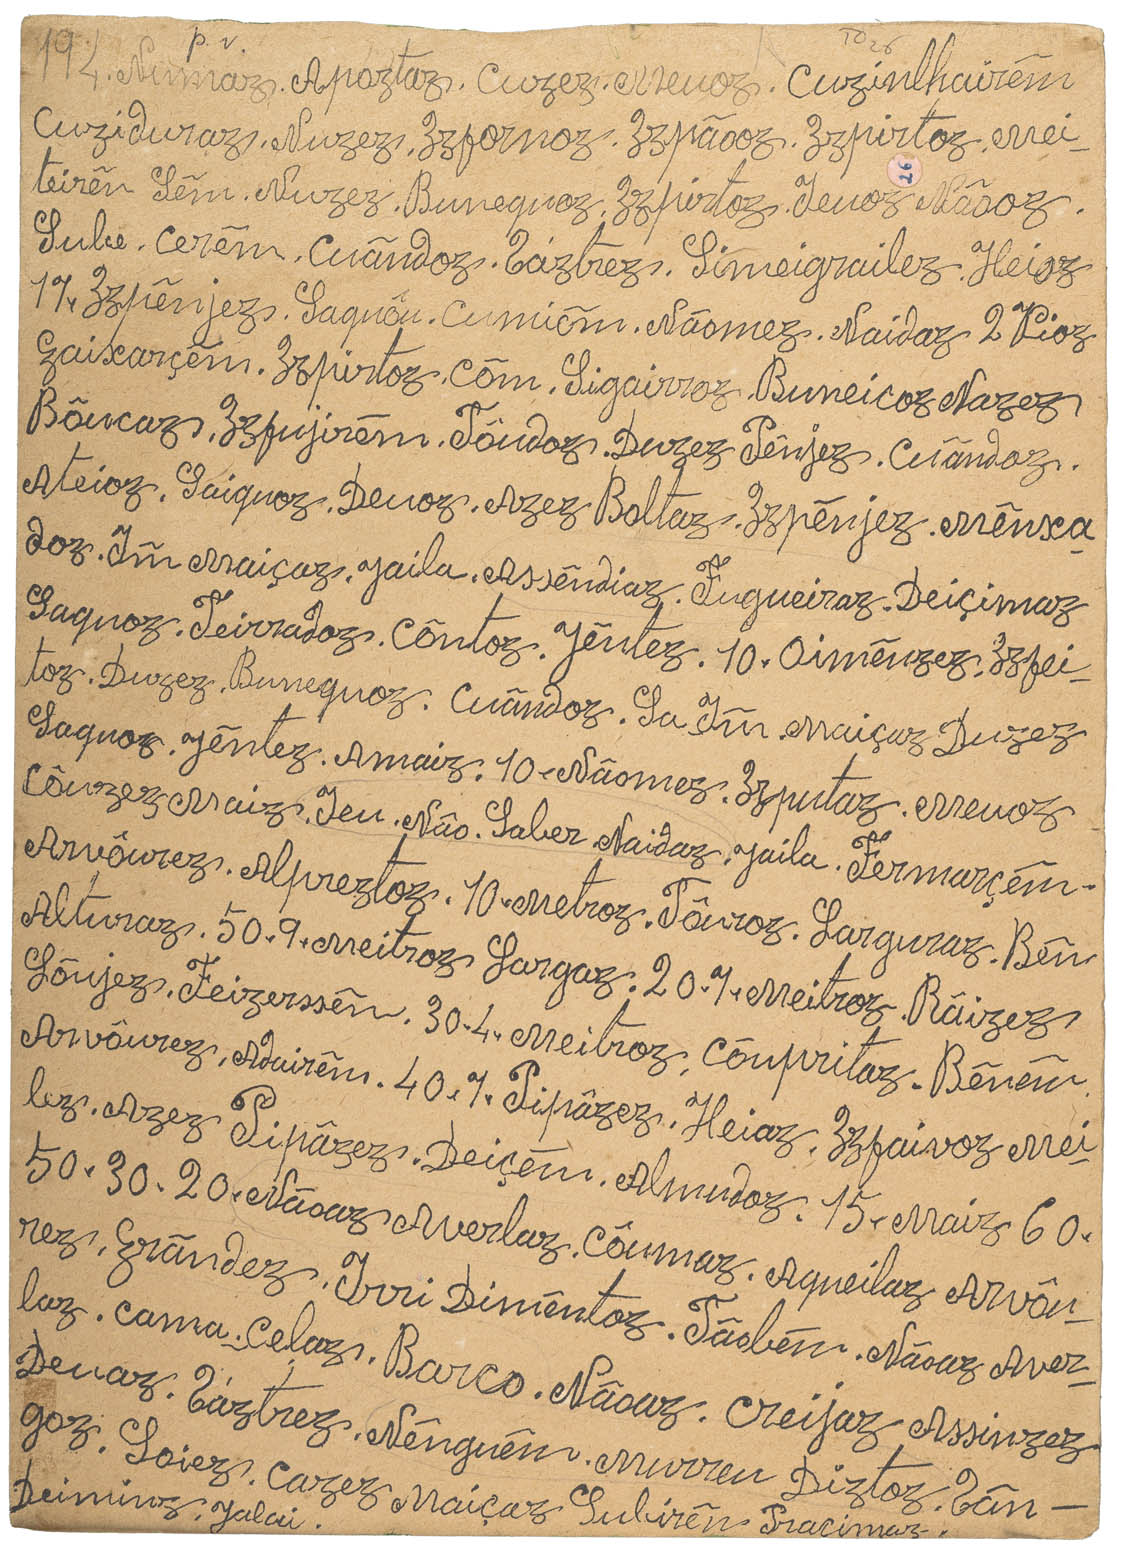 p. v.
194. Numaz. Apoztaz. Cuzez. Meuoz. Cuzinlhairẽm
Cuziduraz. Nuzez. Ʒzfornoz. Ʒzpãooz. Ʒzpirtoz. Mei-
97
teirẽn Sẽm. Nuzez. Bunequoz. Ʒzpirtoz. Jeuoz Nãooz.
Sube. Cerẽm. Cuãndoz. Táztrez. Simeigrailez. Heioz
17. Ʒzpẽnjez. Saquõu. Cumiẽm. Nãomez. Naidaz 2 Pioz
Gaixarçẽm. Ʒzpirtoz. Cõm. Sigairroz. Buneicoz Nazez
Bõucaz. Ʒzfujirẽm. Tõudoz. Duzez Pẽnjez. Cuãndoz.
Ateioz. Saiquoz. Deuoz. Azez Boltaz. Ʒzpẽnjez. Mẽnxa
doz. Jm̃ Maiçaz. Jaila. Assẽndiaz. Fugueiraz. Deiçimaz
Saquoz. Feirradoz. Cõntoz. Jẽntez. 10. Oimẽnzez. Ʒzfei-
toz. Duzez. Bunequoz. Cuãndoz. Sa Jm̃. Maiçaz Duzez
Saquoz. Jẽntez. Amaiz. 10. Nãomez. Ʒzputaz. Meuoz
Cõuzez Maiz. Jeu. Não. Saber Naidaz. Jaila. Fermarçẽm-
Arvõurez. Alpreztoz. 10. Metroz. Tõuroz. Larguraz. Bẽn
Alturaz. 50.9. Meitroz Largaz. 20.7. Meitroz. Rãizez
Lõnjez. Feizerssẽm. 30.4. Meitroz. Cõupritaz. Bẽnẽm.
Arvõurez. Adairẽm. 40.7. Pipãzez. Heiaz. Ʒzfaivoz Mei-
lez. Azez Pipãzez. Deiçẽm. Almudoz. 15. Maiz 60.
50. 30. 20. Nãoaz Averlaz. Cõumaz. Aqueilaz Arvõu-
rez. Grãndez. Jrri Dimẽntoz. Tãobẽm. Nãoaz Aver-
laz. Cama. Celaz. Barco. Nãoaz. Creijaz Assinzez
Deuaz. Táztrez. Nẽnguẽm. Murreu Diztoz. Tãn-
goz. Soiez. Cazez Maiçaz Subirẽn Pracimaz.
Deiminz. Jalai.